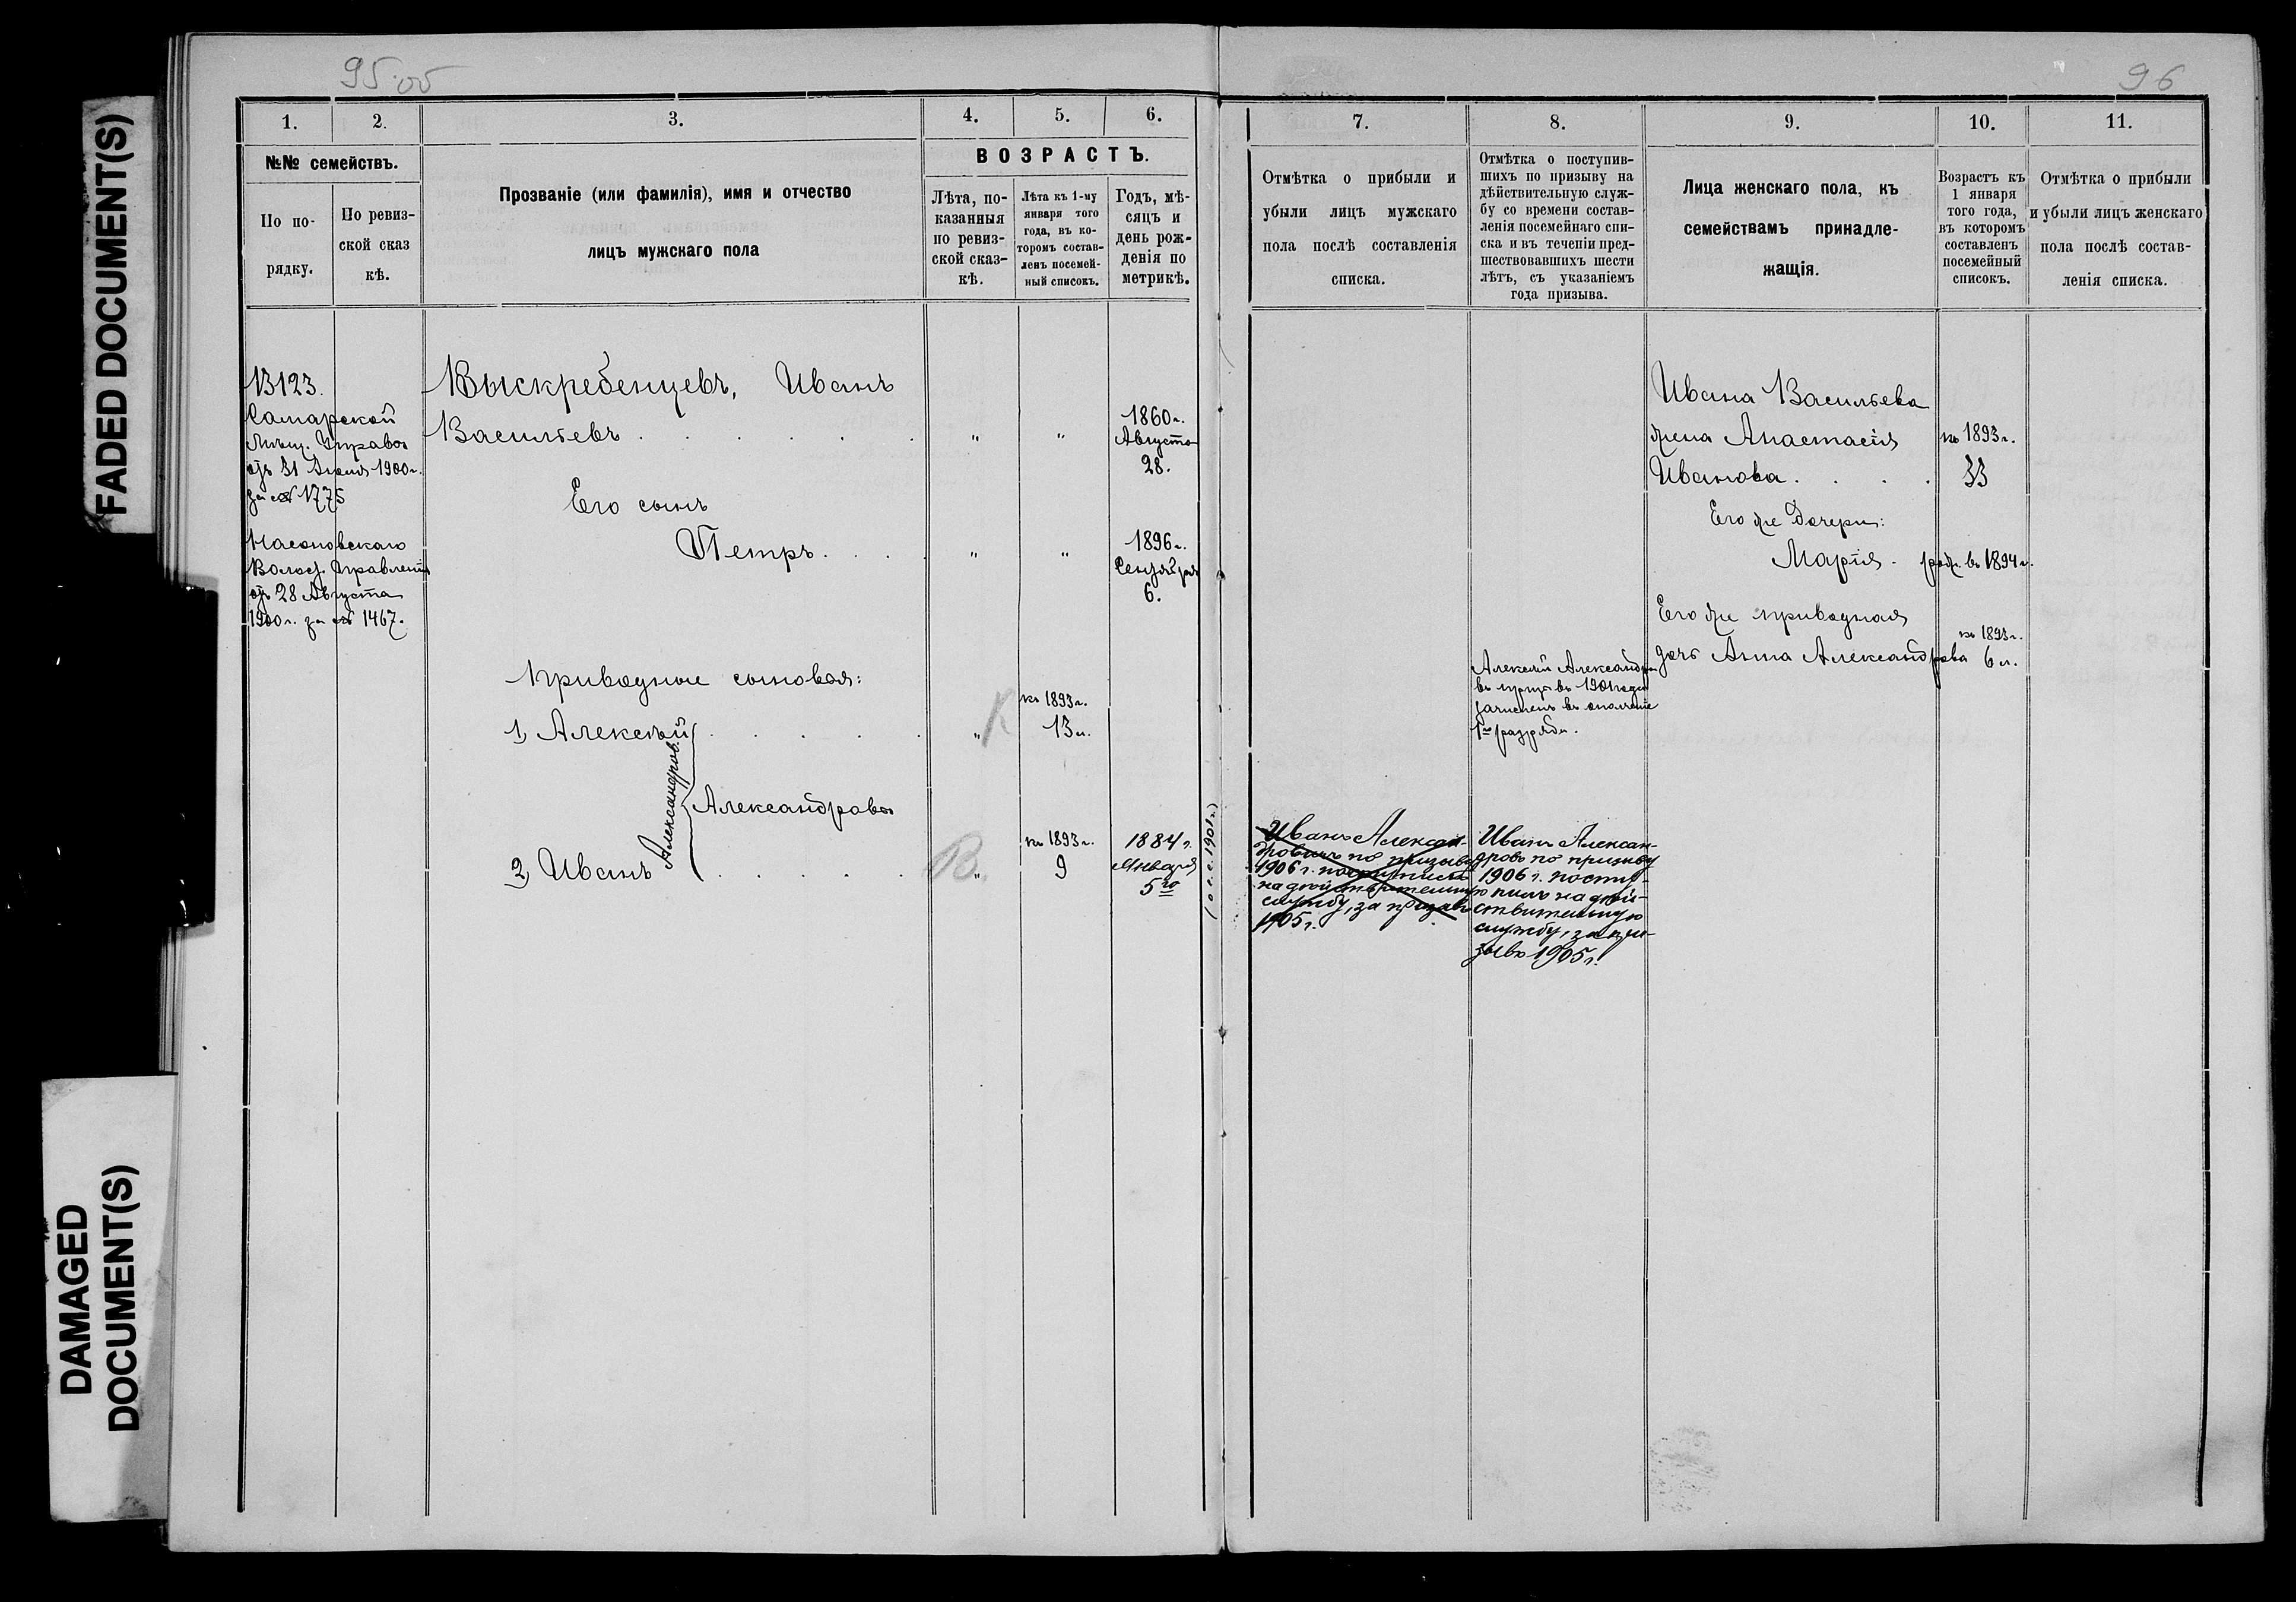 FADED DOCUMENT(S)
DAMAGED
DOCUMENT(S)
95 об
1.
2.
3.
4.
5.
6.
№№ семействъ.
По по-
рядку.
По ревиз-
ской сказ
кѣ.
Прозваніе (или фамилія), имя и отчество
лицъ мужскаго пола
ВОЗРАСТЪ.
Лѣта, по-
казанныя
по ревиз-
ской сказ-
кѣ.
Лѣта къ 1-му
января того
года, въ ко-
торомъ состав-
ленъ посемей-
ный списокъ.
Годъ, мѣ-
сяцъ и
день рож-
денія по
метрикѣ.
В123.
Самарской
Мѣщ. Управы
отъ 31 Іюля 1900 г.
за № 1775
Насоновскаго
Волост. Правленія
отъ 28 Августа
1900 г. за № 1467.
Выскребенцевъ, Иванъ
Васильевъ . . . . . . " "
1860 г.
Августа
28.
Его сынъ
Петръ . . . . " "
1896 г.
Сентября
6.
Приводные сыновья:
1) Алексѣй . . . . . К "
къ 1893 г.
13 л.
Александровъ.
Александровы
2) Иванъ . . . . . В. "
къ 1893 г.
9
1884 г.
Января
5го
(о с.с. 1901 г.)
96
7.
8.
9.
10.
11.
Отмѣтка о прибыли и
убыли лицъ мужскаго
пола послѣ составленія
списка.
Отмѣтка о поступив-
шихъ по призыву на
дѣйствительную служ-
бу со времени состав-
ленія посемейнаго спи-
ска и въ теченіи пред-
шествовавшихъ шести
лѣтъ, съ указаніемъ
года призыва.
Лица женскаго пола, къ
семействамъ принадле-
жащія.
Возрастъ къ
1 января
того года,
въ которомъ
составленъ
посемейный
списокъ.
Отмѣтка о прибыли
и убыли лицъ женскаго
пола послѣ состав-
ленія списка.
Ивана Васильева
жена Анастасія
Иванова . . . .
къ 1893 г.
33
Его же дочери:
Марія . род. въ 1894 г.
Его же приводная
дочь Анна Александрова
къ 1893 г.
6 л.
Алексѣй Александров
въ 1901 году
зачисленъ въ ополченіе
1го разряда.
Иванъ Алексан-
дровичъ по призыву
1906 г.
на дѣйствительную
службу, за призывъ
1905 г.
Иванъ Алексан-
дровъ по призыву
1906 г. посту-
пилъ на дѣй-
ствительную
службу, за при-
зывъ 1905 г.